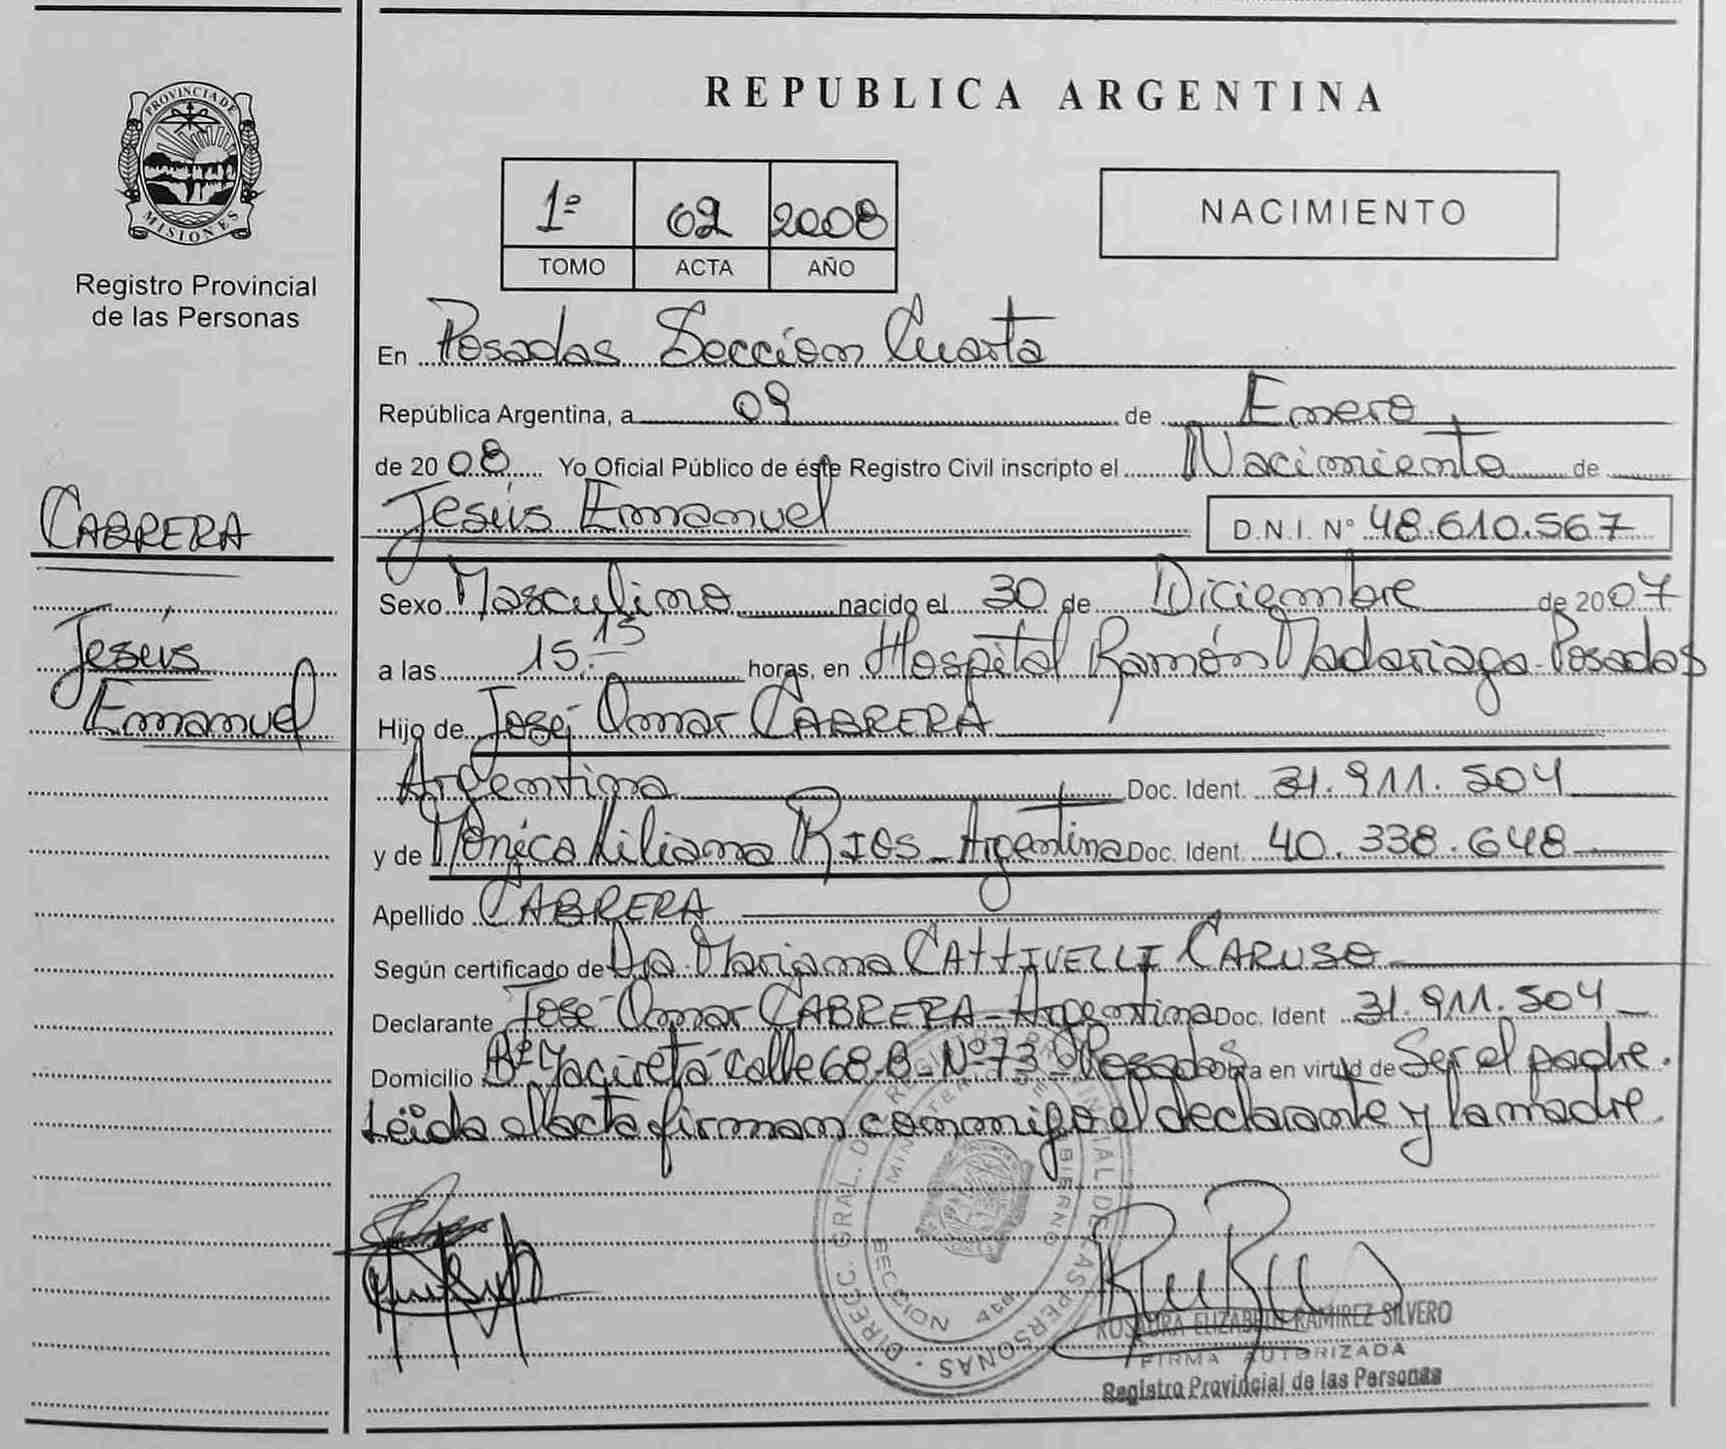 PROVINCIA DE
MISIONES
Registro Provincial
de las Personas
CABRERA
Jesús
Emmanuel
REPUBLICA ARGENTINA
1º 02 2008
TOMO ACTA AÑO
NACIMIENTO
En Posadas Sección Cuarta
República Argentina, a 09 de Enero
de 2008 Yo Oficial Público de éste Registro Civil inscripto el Nacimiento de
Jesús Emmanuel D.N.I. Nº 48.610.567
Sexo Masculino nacido el 30 de Diciembre de 2007
a las 15:15 horas, en Hospital Ramón Madariaga-Posadas
Hijo de José Omar CABRERA
Argentina Doc. Ident. 31.911.504
y de Mónica Liliana RIOS - Argentina Doc. Ident. 40.338.648
Apellido CABRERA
Según certificado de Dra Mariana CATTIVELLI CARUSO
Declarante José Omar CABRERA - Argentina Doc. Ident 31.911.504
Domicilio Bº Yacireta-calle 68-B-Nº 73-Posadas Obra en virtud de Ser el padre.
Leída el acta firman conmigo el declarante y la madre.
DIRECC. GRAL. DE LAS PERSONAS
SECCION 4ta
ROSAURA ELIZABETH RAMIREZ SILVERO
FIRMA AUTORIZADA
Registro Provincial de las Personas